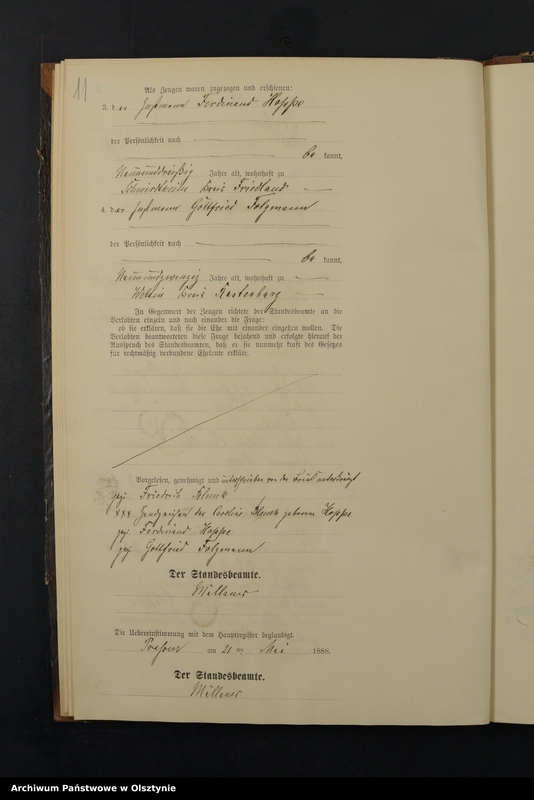 11
Als Zeugen waren zugezogen und erschienen:
3. der Instmann Ferdinand Hoppe
der Persönlichkeit nach
be kannt,
Neununddreißig Jahre alt, wohnhaft zu
Kreis Friedland
4. der Instmann Gottfried Folgmann
der Persönlichkeit nach
be kannt,
Neunundzwanzig Jahre alt, wohnhaft zu
Kreis Rastenburg
In Gegenwart der Zeugen richtete der Standesbeamte an die
Verlobten einzeln und nach einander die Frage:
ob sie erklären, daß sie die Ehe mit einander eingehen wollen. Die
Verlobten beantworteten diese Frage bejahend und erfolgte hierauf der
Ausspruch des Standesbeamten, daß er sie nunmehr kraft des Gesetzes
für rechtmäßig verbundene Eheleute erkläre.
Vorgelesen, genehmigt und unterschrieben von der Braut unterkreuzt
gez Friedrich
+++ Handzeichen der Caroline geborene Hoppe
gez Ferdinand Hoppe
gez Gottfried Folgmann
Der Standesbeamte.
Die Uebereinstimmung mit dem Hauptregister beglaubigt.
am 21 ten Mai 1888.
Der Standesbeamte.
Archiwum Państwowe w Olsztynie